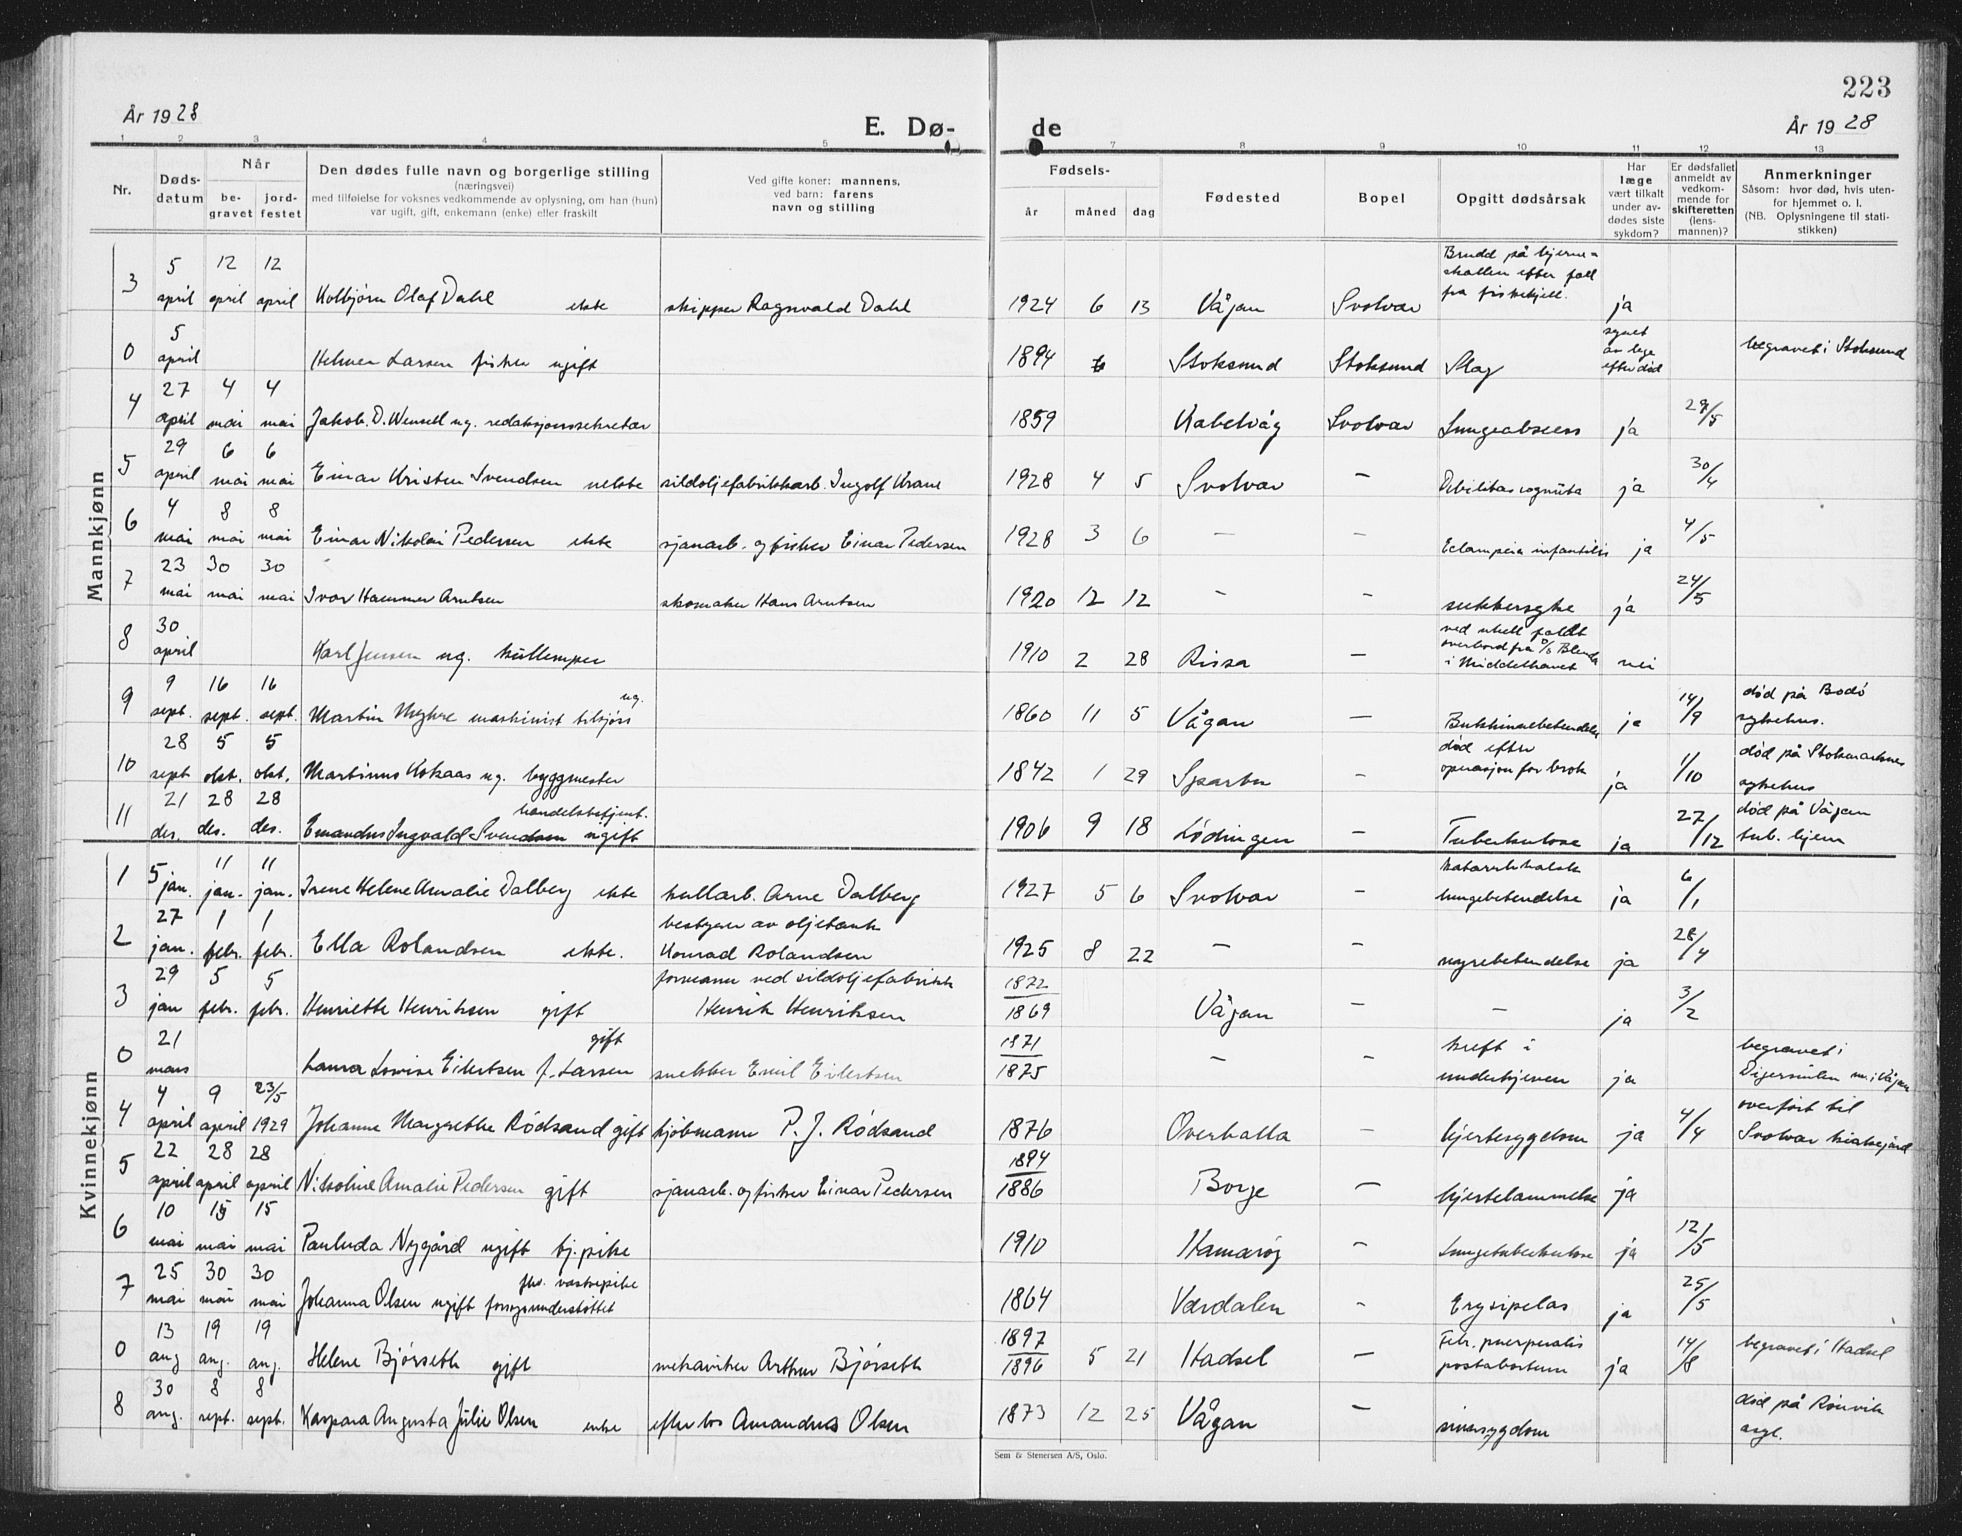 223
År 1928
E. Dø-
de
År 1928
1 2 3 4 5 7 8 9 10 11 12 13
Nr.
Døds-
datum
Når
be-
gravet
jord-
festet
Den dødes fulle navn og borgerlige stilling
(næringsvei)
med tilføielse for voksnes vedkommende av oplysning, om han (hun)
var ugift, gift, enkemann (enke) eller fraskilt
Ved gifte koner: mannens,
ved barn: farens
navn og stilling
Fødsels-
år måned dag
Fødested
Bopel
Opgitt dødsårsak
Har
læge
vært tilkalt
under av-
dødes siste
sykdom?
Er dødsfallet
anmeldt av
vedkom-
mende for
skifteretten
(lens-
mannen)?
Anmerkninger
Såsom: hvor død, hvis uten-
for hjemmet o. l.
(NB. Oplysningene til stati-
stikken)
Mannkjønn
3 5 april 12 april 12 april Kolbjørn Olaf Dahl ekte skipper Ragnvald Dahl 1924 6 13 Vågan Svolvær Brudd på hjerne=
skallen efter fall
fra fiskehjell. ja
0 5 april Helmer Larsen fisker ugift 1894 6 Stoksund Stoksund Slag synet
av lege
efter død begravet i Stoksund
4 27 april 4 mai 4 mai Jakob. D. Wensell ug. redaksjonssekretær 1859 Kabelvåg Svolvær Lungeabscess ja 29/5
5 29 april 6 mai 6 mai Einar Kristen Svendsen uekte sildoljefabrikkarb. Ingolf Krane 1928 4 5 Svolvær – Debilitas cognita ja 30/4
6 4 mai 8 mai 8 mai Einar Nikolai Pedersen ekte sjauarb. og fisker Einar Pedersen 1928 3 6 – – Eclampsia infantilis ja 4/5
7 23 mai 30 mai 30 mai Ivar Hammer Arntsen skomaker Hans Arntsen 1920 12 12 – – sukkersyke ja 24/5
8 30 april Karl Jensen ug. kullemper 1910 2 28 Rissa – ved uhell faldt
overbord fra D/S Blenda
i Middelhavet nei
9 9 sept. 16 sept. 16 sept. Martin Myhre maskinist tilsjøs ug. 1860 11 5 Vågan – Bukhinnebetendelse ja 14/9 død på Bodø
sykehus.
10 28 sept 5 okt. 5 okt. Martinus Kokaas ug. byggmester 1842 1 29 Sparbu – død efter
operasjon for brok ja 1/10 død på Stokmarknes
sykehus
11 21 des. 28 des. 28 des. Emandus Ingvald Svendsen handelsbetjent. ugift 1906 9 18 Lødingen – Tuberkulose ja 27/12 død på Vågan
tub. hjem
Kvinnekjønn
1 5 jan. 11 jan. 11 jan. Irene Helene Amalie Dalberg ekte kullarb. Arne Dalberg 1927 5 6 Svolvær – katarrhkalsk
lungebetendelse ja 6/1
2 27 jan. 1 febr. 1 febr. Ella Rolandsen ekte. bestyrer av oljetank
Konrad Rolandsen 1925 8 22 – – nyrebetendelse ja 28/4
3 29 jan 5 febr. 5 febr. Henriette Henriksen gift formann ved sildoljefabrikk
Henrik Henriksen 1872
1869 Vågan – – ja 3/2
0 21 mars Laura Lovise Eilertsen f. Larsen gift snekker Emil Eilertsen 1871
1875 – – kreft i
underlivven ja begravet i
Digermulen
4 4 april 9 april 23/5 1929 Johanne Margrethe Rødsand gift kjøbmann P. J. Rødsand 1876 Overhalla – hjertesygdom ja 4/4 overført til
Svolvær kirkegård
5 22 april 28 april 28 april Nikoline Amalie Pedersen gift sjauarb. og fisker Einar Pedersen 1894
1886 Borge – hjertelammelse ja
6 10 mai 15 mai 15 mai Paulinda Nygård ugift tj. pike 1910 Hamarøy – Lungetuberkulose ja 12/5
7 25 mai 30 mai 30 mai Johanna Olsen ugift fhv. vaskepike
forsorgsunderstøttet 1864 Verdalen – Erysipelas ja 25/5
0 13 aug 19 aug. 19 aug. Helene Bjørseth gift mekaniker Arthur Bjørseth 1897
1896 5 21 Hadsel – Febr. puerperalis
postabortum ja 14/8 begravet i Hadsel
8 30 aug. 8 sept. 8 sept. Kaspara Augusta Julie Olsen enke efter los Amandus Olsen 1873 12 25 Vågan – sinnssygdom død på Rønvik
asyl.
Sem & Stenersen A/S, Oslo.